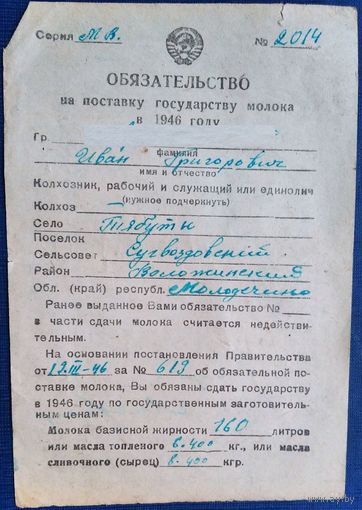 Серия М.В. № 2014
ОБЯЗАТЕЛЬСТВО
на поставку государству молока
в 1946 году
Гр.
фамилия
Иван Григорович
имя и отчество
Колхозник, рабочий и служащий или единолич
(нужное подчеркнуть)
Колхоз
Село Тябуты
Поселок
Сельсовет Сугвоздовский
Район Воложинский
Обл. (край) республ. Молодечно
Ранее выданное Вами обязательство №
в части сдачи молока считается недействи-
тельным.
На основании постановления Правительства
от 19.III-46 за № 619 об обязательной по-
ставке молока, Вы обязаны сдать государству
в 1946 году по государственным заготовитель-
ным ценам:
Молока базисной жирности 160 литров
или масла топленого 6.400 кг., или масла
сливочного (сырец) 8.400 кгр.